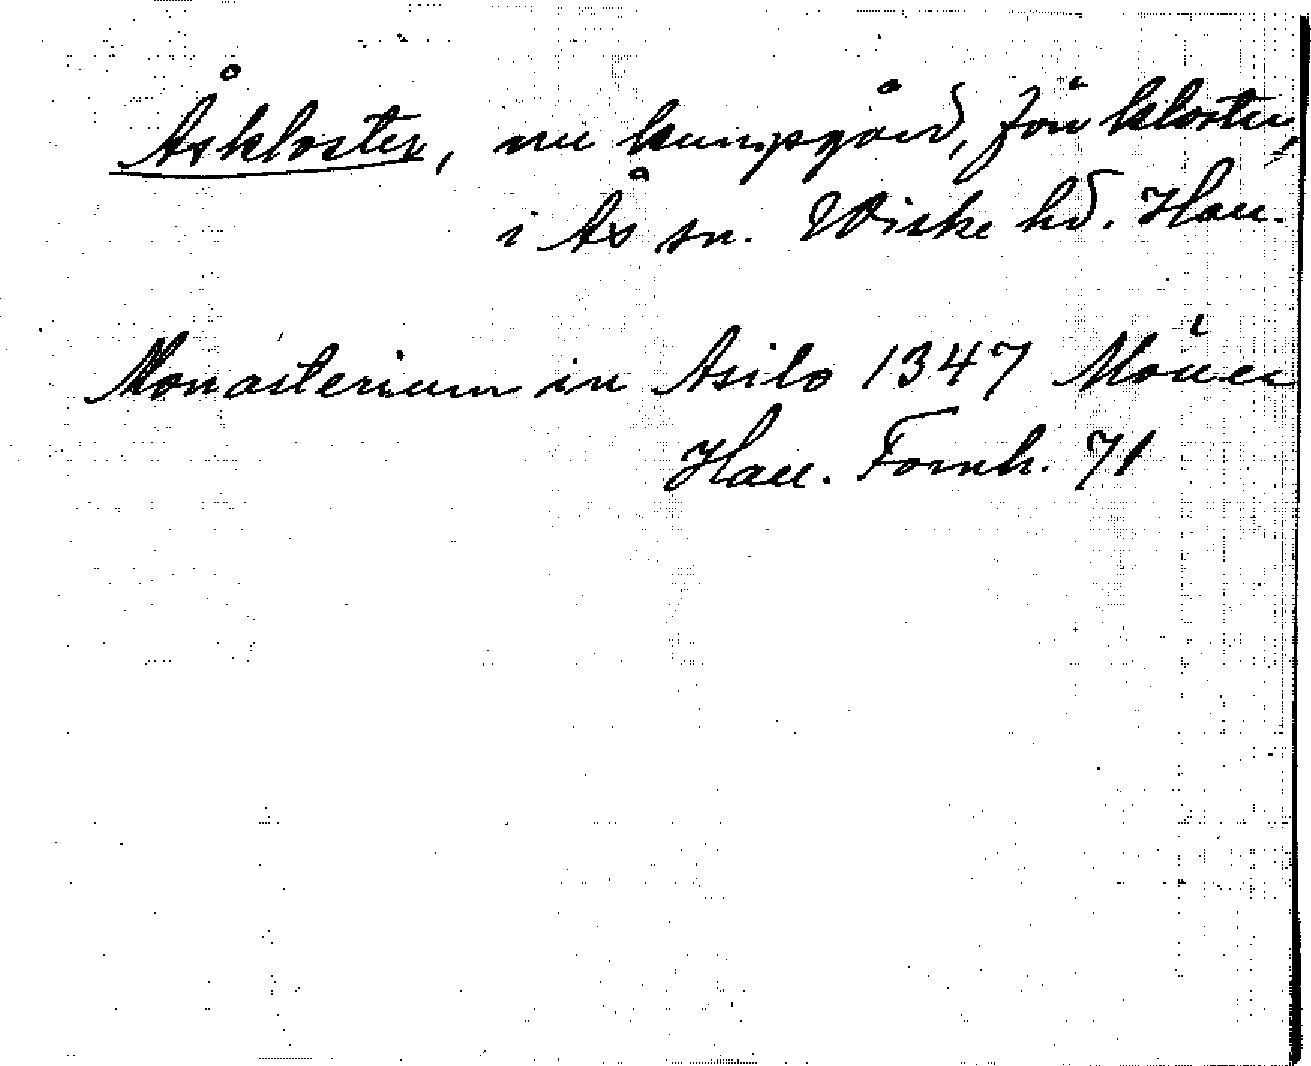 Åskloster, nu kungsgård, förr kloster,
i Ås sn. Viske hd. Hall.
Monasterium in Asilo 1347
Hall. Fornh. 71